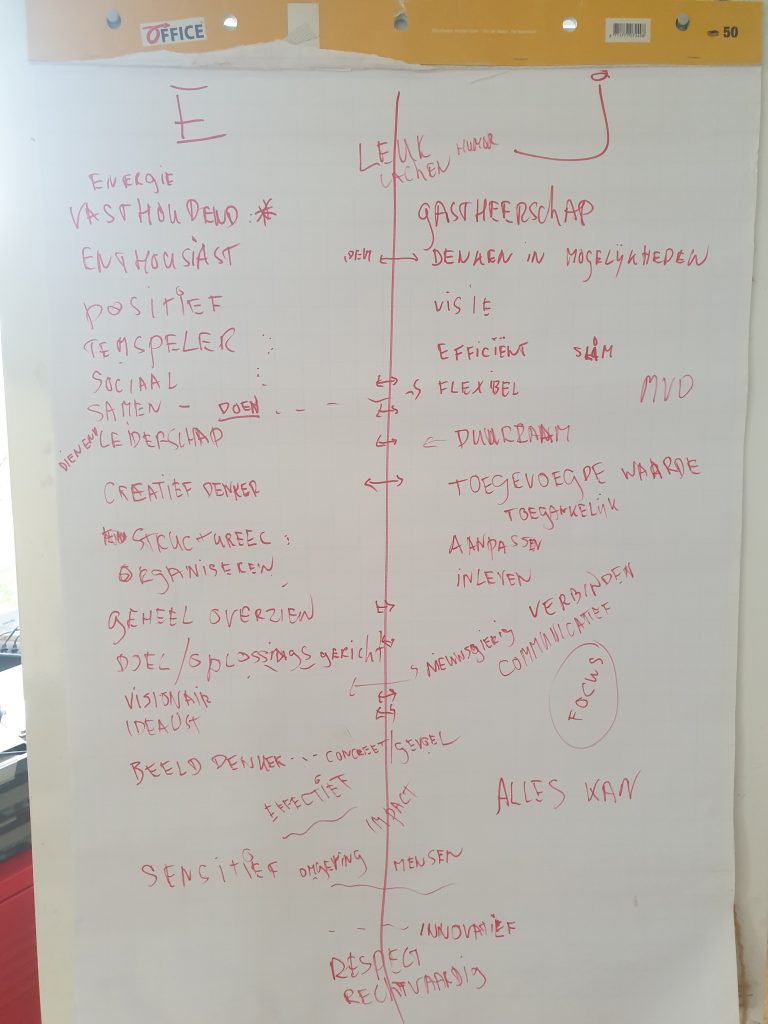 OFFICE
50
E
J
LEUK HUMOR
LACHEN
ENERGIE
VASTHOUDEND *
GASTHEERSCHAP
ENTHOUSIAST
IDEM ↔ DENKEN IN MOGELIJKHEDEN
POSITIEF
VISIE
TEMSPELER
EFFICIËNT SLIM
SOCIAAL
FLEXIBEL
MVO
SAMEN - DOEN
DIENEND LEIDERSCHAP
DUURZAAM
CREATIEF DENKER
TOEGEVOEGDE WAARDE
TOEGANKELIJK
STRUCTUREEL
AANPASSEN
ORGANISEREN
INLEVEN
GEHEEL OVERZIEN
VERBINDEN
DOEL/OPLOSSINGSGERICHT
NIEUWSGIERIG
COMMUNICATIEF
FOCUS
VISIONAIR
IDEALIST
BEELD DENKER ... CONCREET/GEVOEL
EFFECTIEF
IMPACT
ALLES KAN
SENSITIEF OMGEVING MENSEN
INNOVATIEF
RESPECT
RECHTVAARDIG